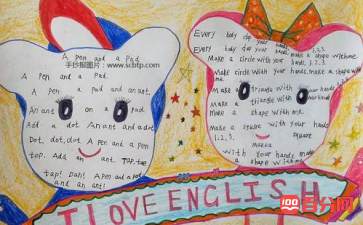 A pen and a Pad.
手抄报图片:www.scbtp.com
A pen and a Pad.
A pen a pad and an ant.
An ant on a pad.
Add a dot An ant and a dot.
Dot, dot, dot A Pen and a Pen
top. Add an ant TAP. TAP.
tap! Dah! A Pen and a pad
and an ant!
Every body dop your hands, 1.2.3.
Every body dop your hands,
Make a circle with your hands, 1.2.3.
Make circle With your hands, make a shape with me.
Make a triangle with
Make a triangle with your
Make a shape With me.
Make a square with your hands
1.2.3. Make a square
With your hands make
a shape With me.
I LOVE ENGLISH
百分网